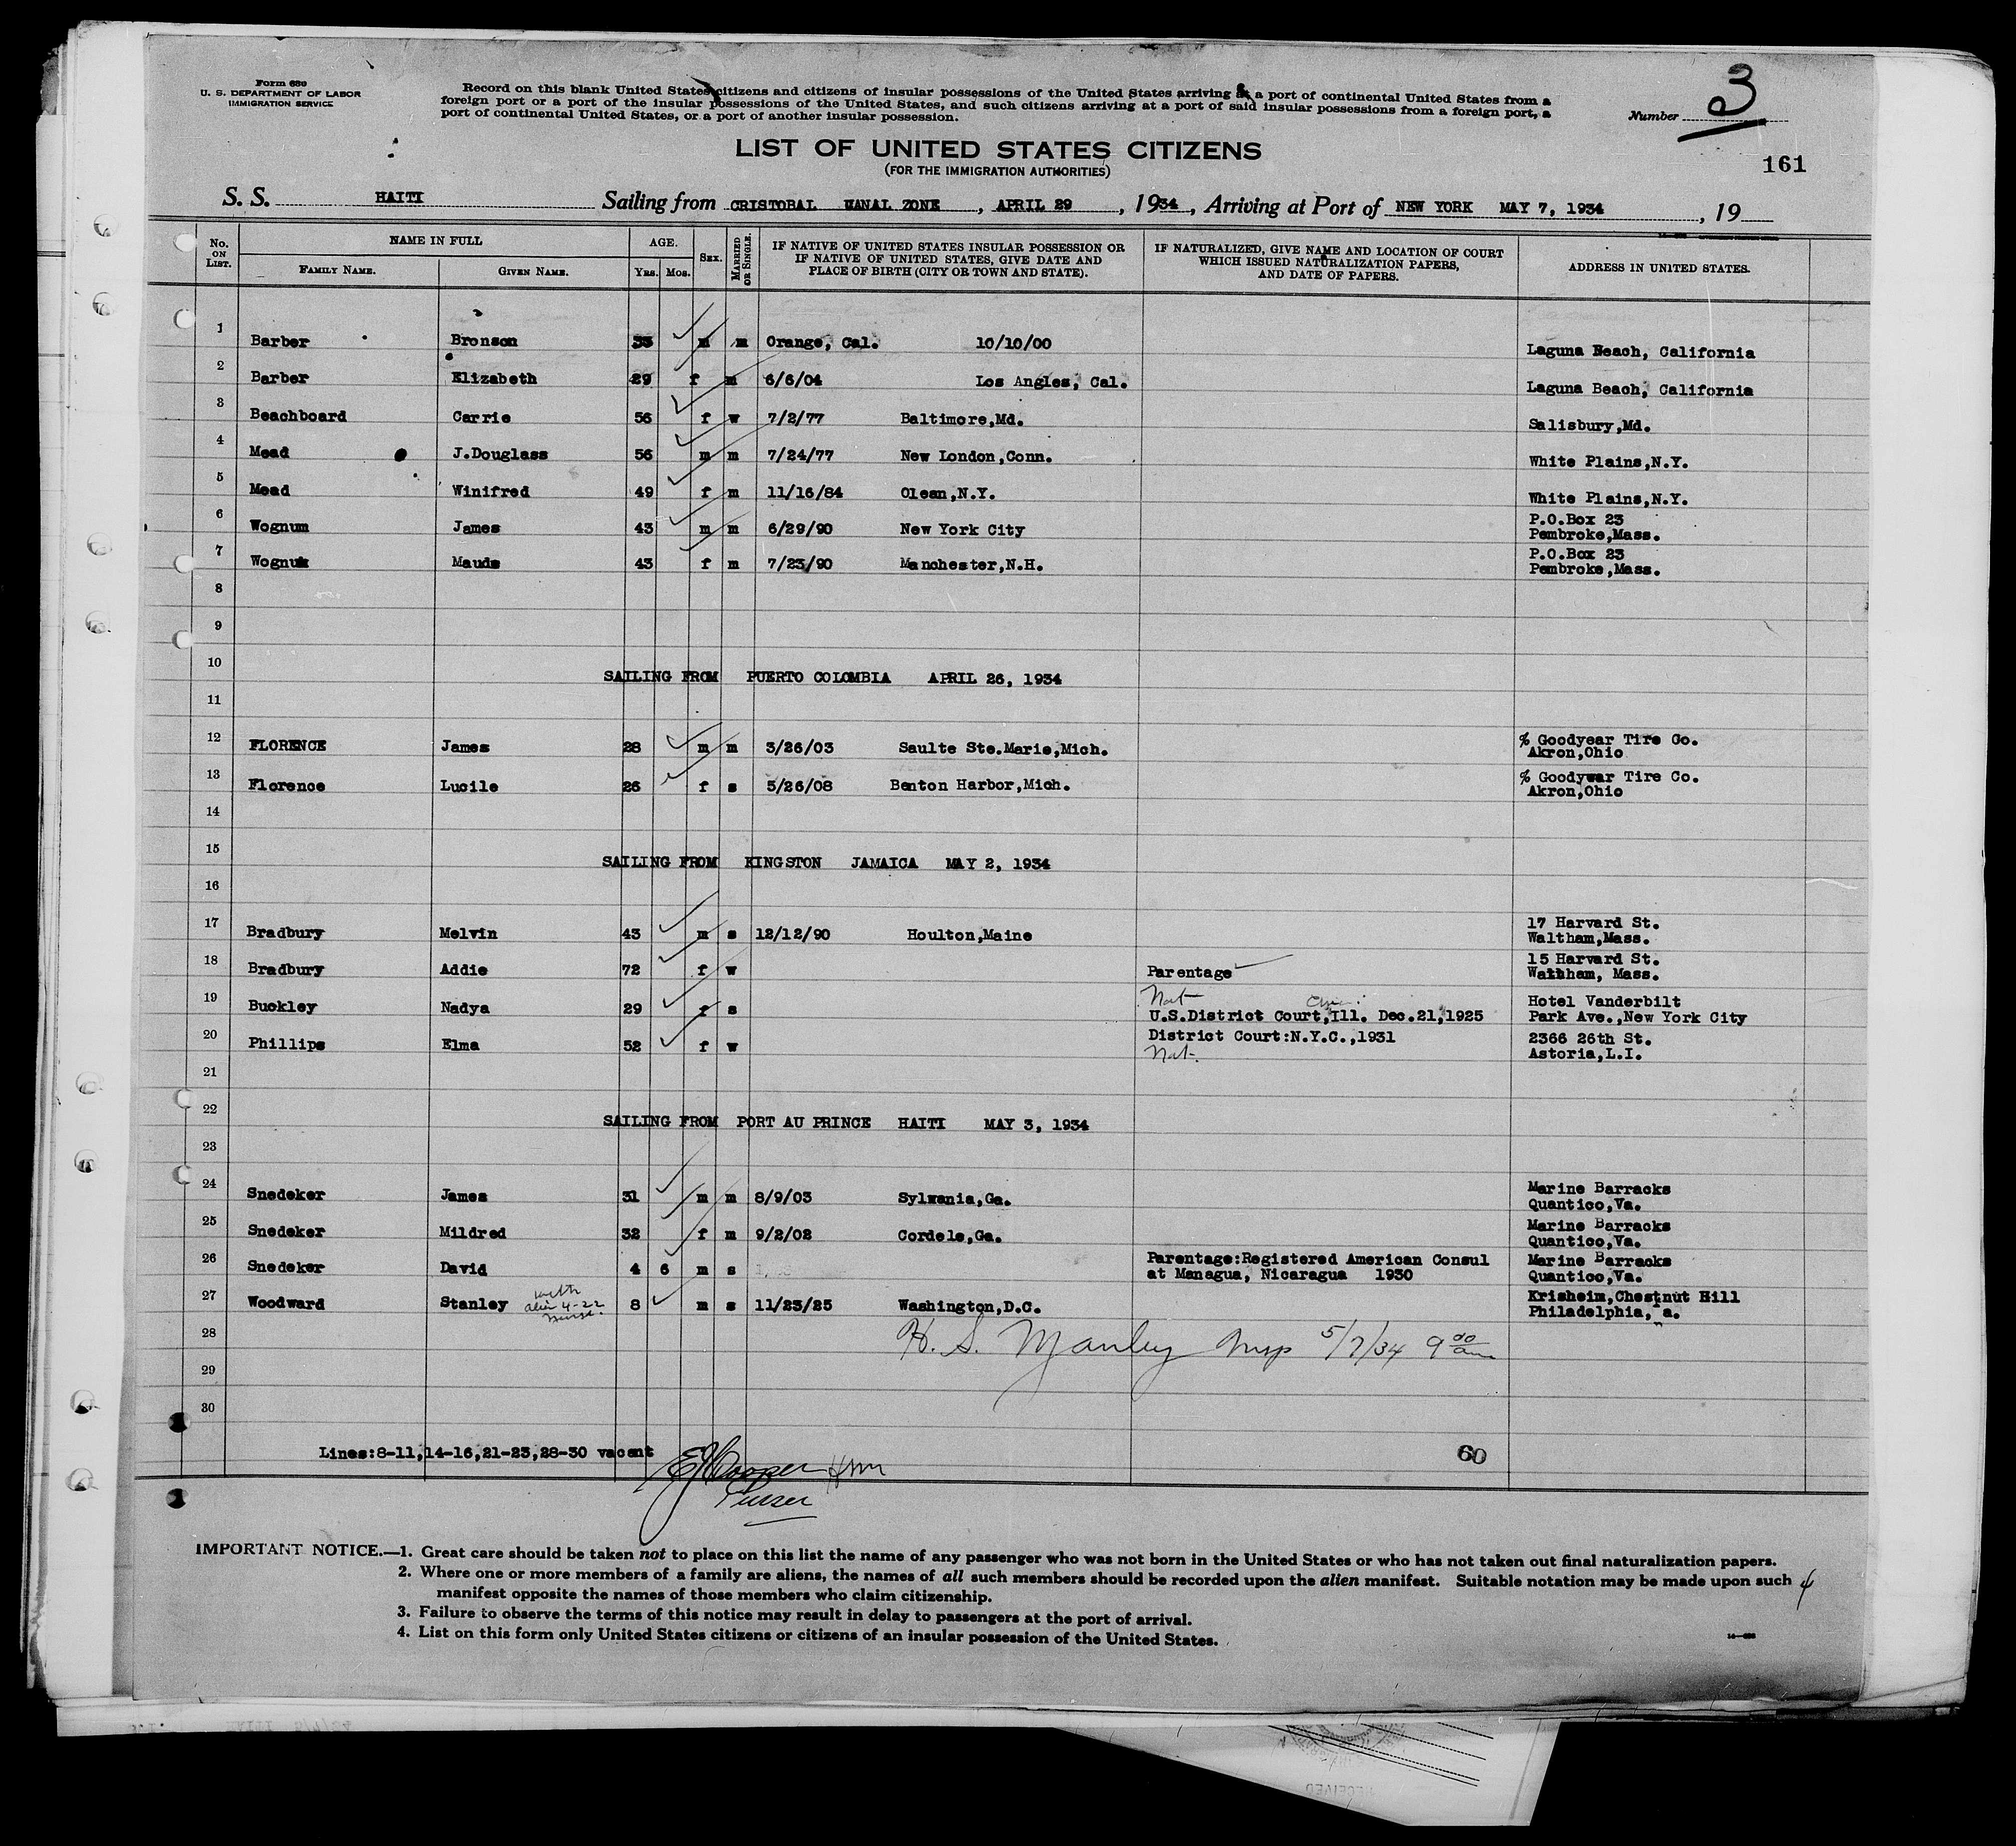 Form 630
U. S. DEPARTMENT OF LABOR
IMMIGRATION SERVICE
Record on this blank United States citizens and citizens of insular possessions of the United States arriving at a port of continental United States from a
foreign port or a port of the insular possessions of the United States, and such citizens arriving at a port of said insular possessions from a foreign port, a
port of continental United States, or a port of another insular possession.
Number 3
LIST OF UNITED STATES CITIZENS
(FOR THE IMMIGRATION AUTHORITIES)
161
S. S. HAITI Sailing from CRISTOBAL WANAL ZONE, APRIL 29, 1934, Arriving at Port of NEW YORK MAY 7, 1934, 19
No. ON LIST. NAME IN FULL FAMILY NAME. GIVEN NAME. AGE. YRS. MOS. SEX. MARRIED OR SINGLE. IF NATIVE OF UNITED STATES INSULAR POSSESSION OR IF NATIVE OF UNITED STATES, GIVE DATE AND PLACE OF BIRTH (CITY OR TOWN AND STATE). IF NATURALIZED, GIVE NAME AND LOCATION OF COURT WHICH ISSUED NATURALIZATION PAPERS, AND DATE OF PAPERS. ADDRESS IN UNITED STATES.
1 Barber Bronson 33 m m Orange, Cal. 10/10/00 Laguna Beach, California
2 Barber Elizabeth 29 f m 6/6/04 Los Angles, Cal. Laguna Beach, California
3 Beachboard Carrie 56 f w 7/2/77 Baltimore,Md. Salisbury,Md.
4 Mead J.Douglass 56 m m 7/24/77 New London,Conn. White Plains,N.Y.
5 Mead Winifred 49 f m 11/16/84 Olean,N.Y. White Plains,N.Y.
6 Wognum James 43 m m 6/29/90 New York City P.O.Box 23 Pembroke,Mass.
7 Wognum Maude 43 f m 7/23/90 Manchester,N.H. P.O.Box 23 Pembroke,Mass.
8
9
10 SAILING FROM PUERTO COLOMBIA APRIL 26, 1934
11
12 FLORENCE James 28 m m 3/26/03 Saulte Ste.Marie,Mich. % Goodyear Tire Co. Akron,Ohio
13 Florence Lucile 26 f s 5/26/08 Benton Harbor,Mich. % Goodywar Tire Co. Akron,Ohio
14
15 SAILING FROM KINGSTON JAMAICA MAY 2, 1934
16
17 Bradbury Melvin 43 m s 12/12/90 Houlton,Maine 17 Harvard St. Waltham,Mass.
18 Bradbury Addie 72 f w Parentage 15 Harvard St. Waltham, Mass.
19 Buckley Nadya 29 f s Nat U.S.District Court,Ill. Dec.21,1925 Hotel Vanderbilt Park Ave.,New York City
20 Phillips Elma 52 f w District Court:N.Y.C.,1931 Nat. 2366 26th St. Astoria,L.I.
21
22 SAILING FROM PORT AU PRINCE HAITI MAY 3, 1934
23
24 Snedeker James 31 m m 8/9/03 Sylvania,Ga. Marine Barracks Quantico,Va.
25 Snedeker Mildred 32 f m 9/2/02 Cordele,Ga. Marine Barracks Quantico,Va.
26 Snedeker David 4 6 m s Parentage:Registered American Consul at Managua, Nicaragua 1930 Marine Barracks Quantico,Va.
27 Woodward Stanley with alien 4-22 nurse. 8 m s 11/23/25 Washington,D.C. Krisheim,Chestnut Hill Philadelphia, a.
28 H. S. Manley Insp 5/7/34 9 00 am
29
30
Lines:8-11,14-16,21-23,28-30 vacant
60
E J Cooper HSM
Purser
IMPORTANT NOTICE.—1. Great care should be taken not to place on this list the name of any passenger who was not born in the United States or who has not taken out final naturalization papers.
2. Where one or more members of a family are aliens, the names of all such members should be recorded upon the alien manifest. Suitable notation may be made upon such
manifest opposite the names of those members who claim citizenship.
3. Failure to observe the terms of this notice may result in delay to passengers at the port of arrival.
4. List on this form only United States citizens or citizens of an insular possession of the United States.